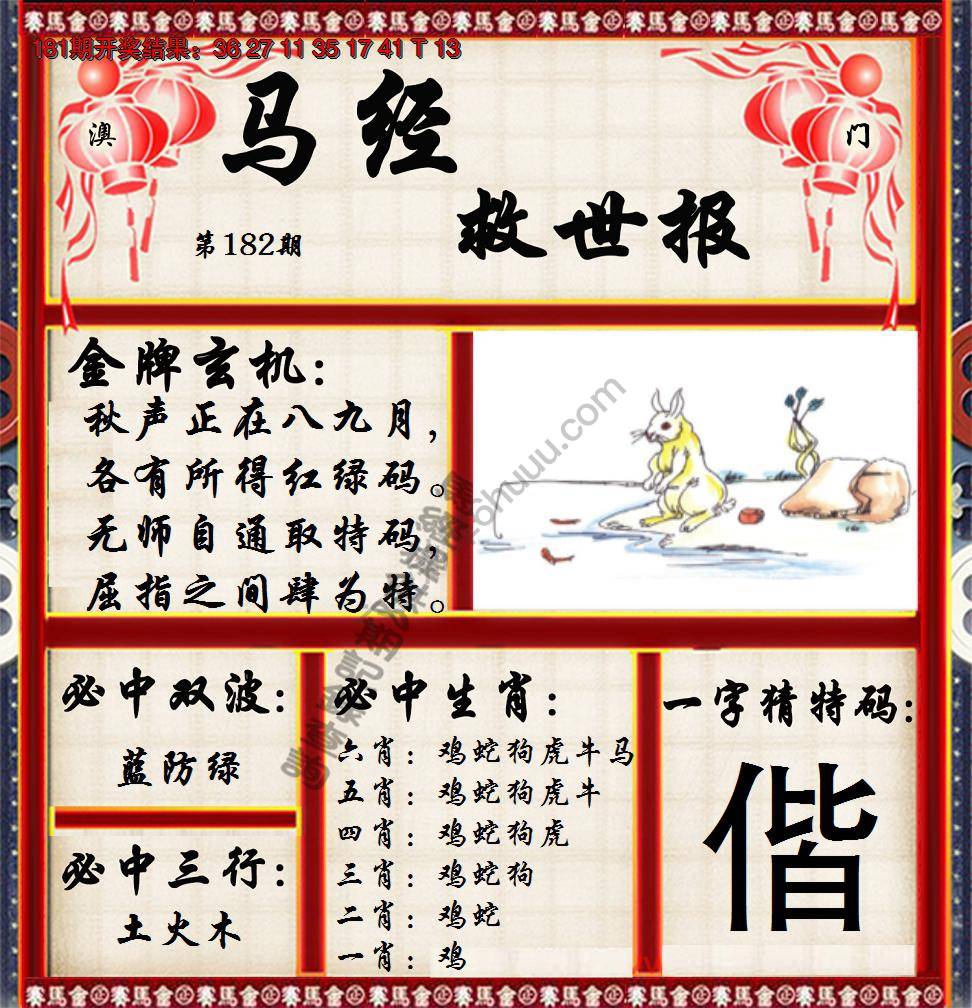 181期开奖结果：36 27 11 35 17 41 T 13
澳
门
马经
救世报
第182期
金牌玄机：
秋声正在八九月，
各有所得红绿码。
无师自通取特码，
屈指之间肆为特。
必中双波：
蓝防绿
必中三行：
土火木
必中生肖：
六肖：鸡蛇狗虎牛马
五肖：鸡蛇狗虎牛
四肖：鸡蛇狗虎
三肖：鸡蛇狗
二肖：鸡蛇
一肖：鸡
一字猜特码：
偕